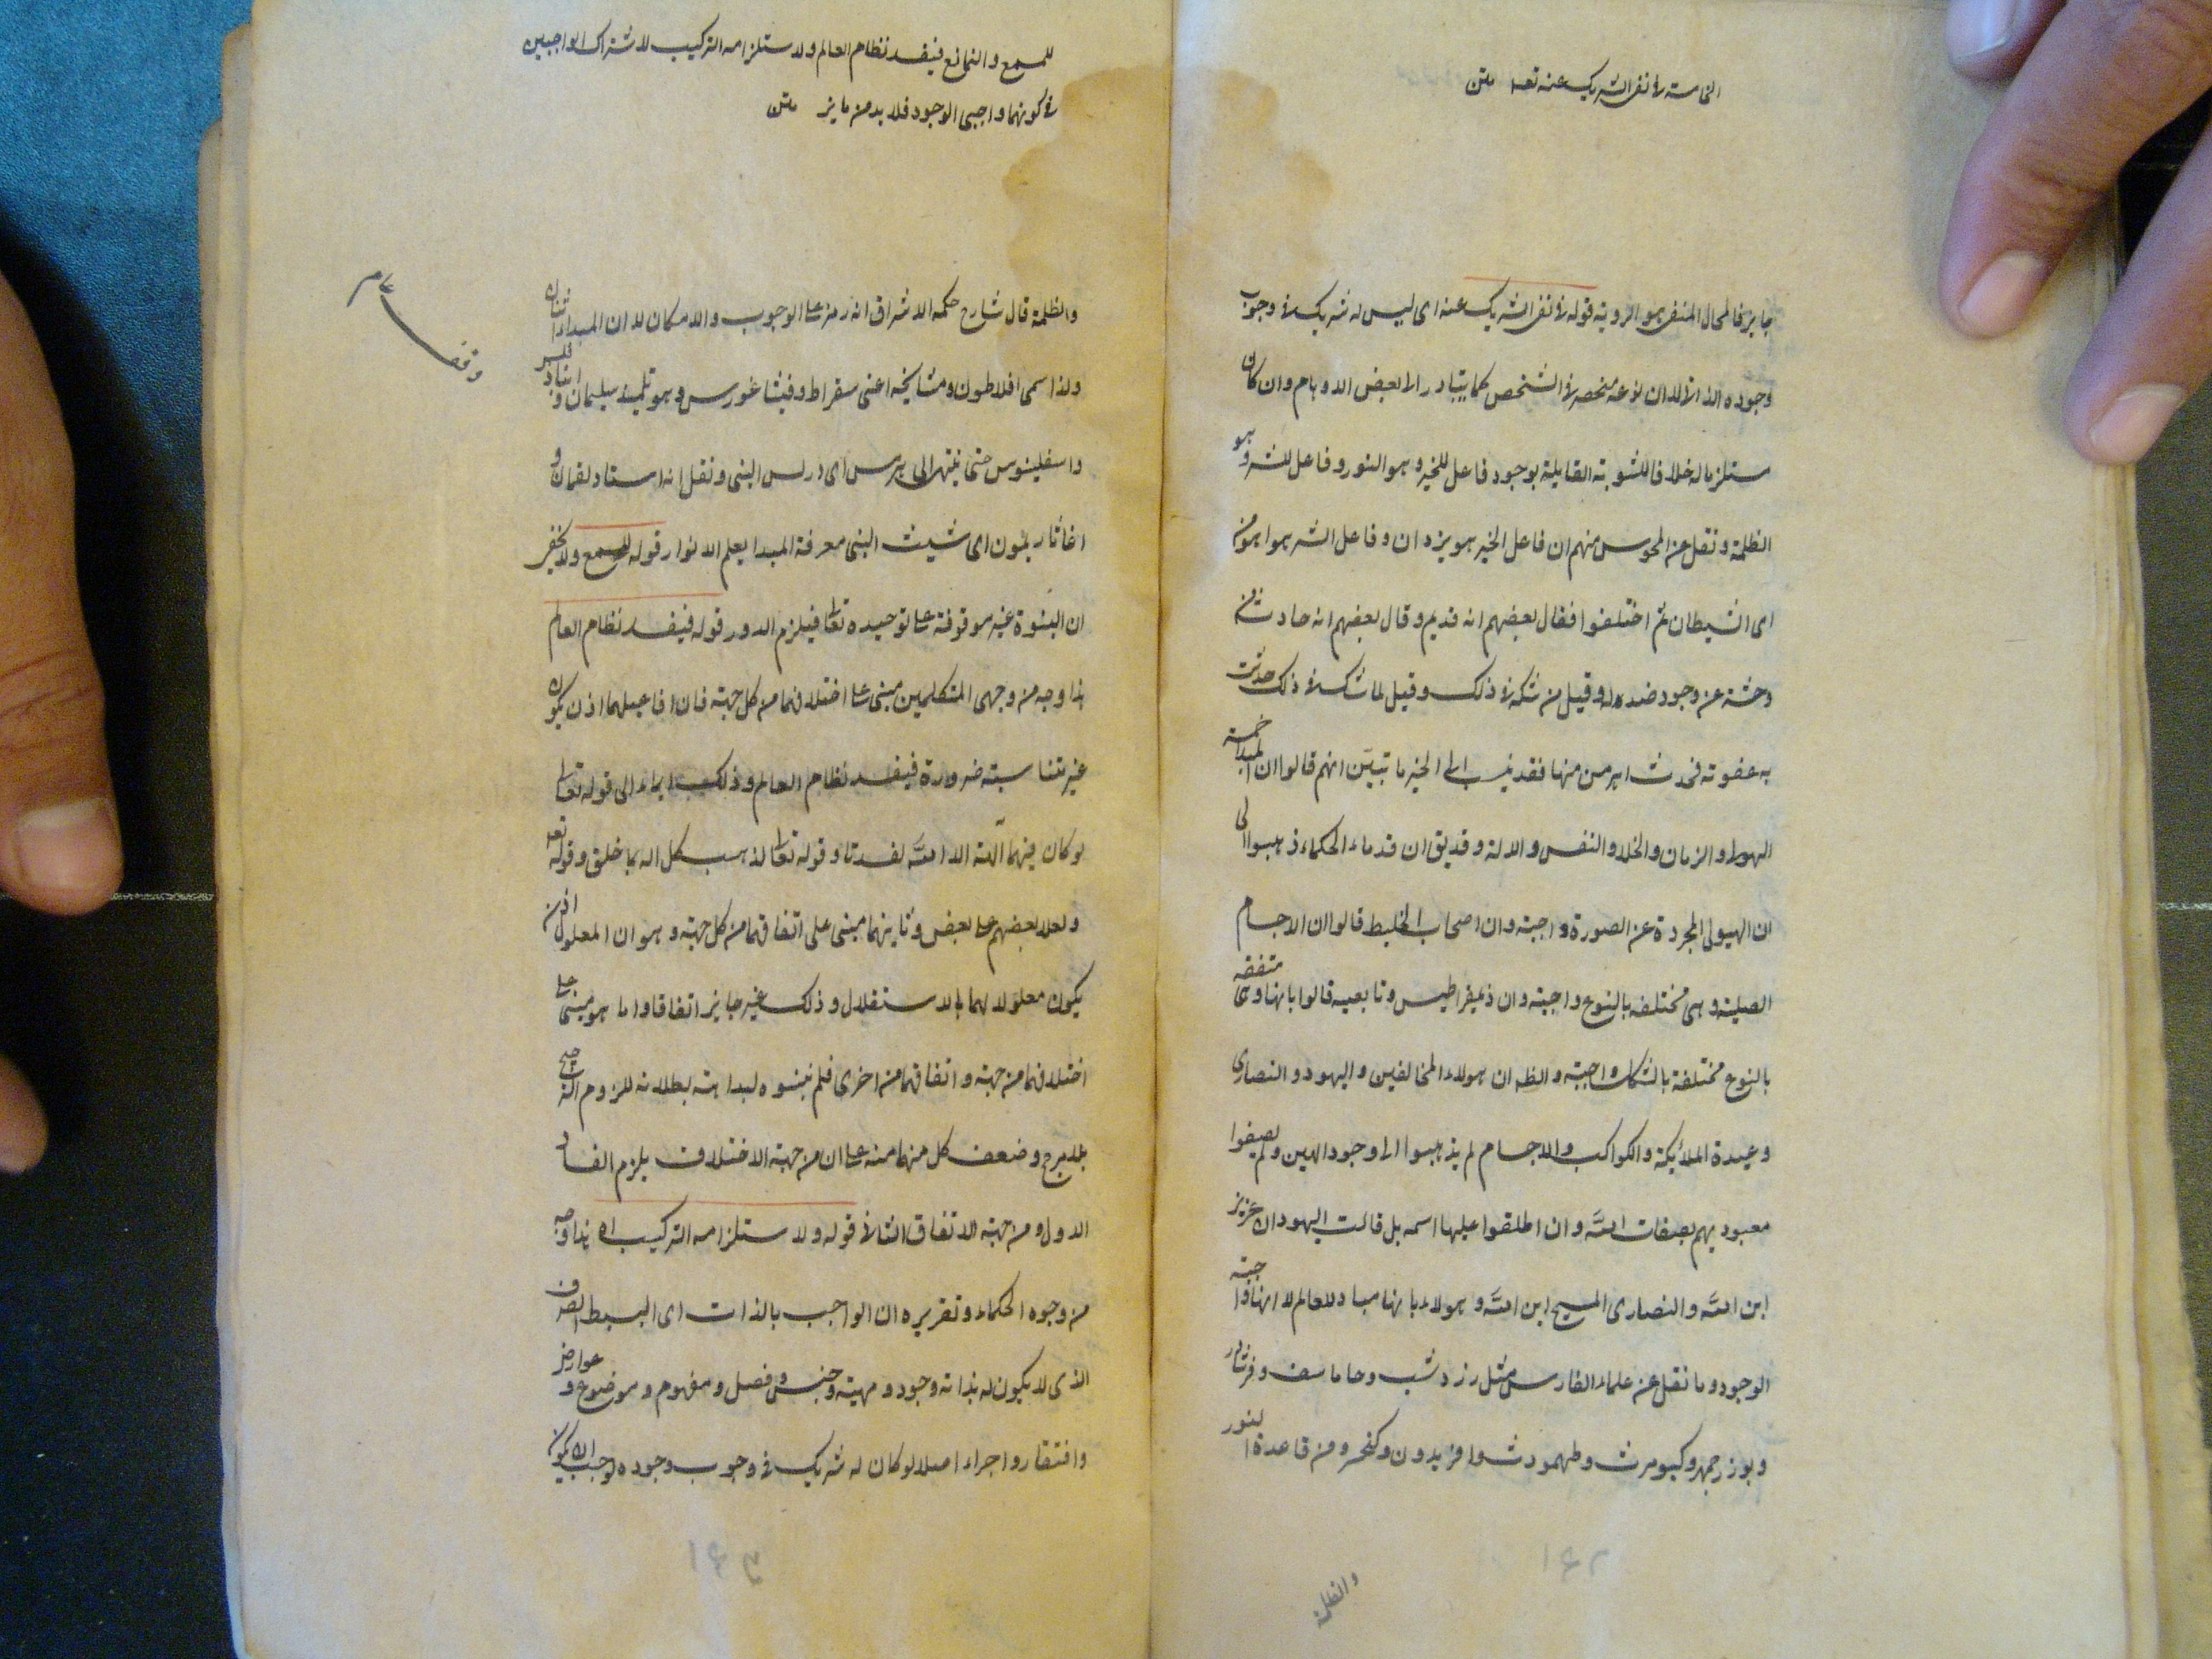 الخامسة في نفي الشريك عنه تعه متن
جايز فالمحال المنفي هو الروية قوله في نفي الشريك عنه اى ليس له شريك في وجوب
وجوده الذاتي لا ان نوعه منحصر في الشخص كما يتبادر الى بعض الاوهام وان كان
مستلزما له خلافا للثنوية القايلة بوجود فاعل للخير وهو النور وفاعل للشر وهو
الظلمة ونقل عن المجوس منهم ان فاعل الخير هو يزدان وفاعل الشر هو اهرمن
اى الشيطان ثم اختلفوا فقال بعضهم انه قديم وقال بعضهم انه حادث من
وحشة عن وجود ضده له وقيل من شكه في ذلك وقيل لما شك في ذلك حدثت
به عفونة فحدث اهرمن منها فقد نسب الى الخير ما تبين انهم قالوا ان المبدا خمسة
الهيولى والزمان والخلا والنفس والاله وقد يق ان قدماء الحكماء ذهبوا الى
ان الهيولى المجردة عن الصورة واجبة وان اصحاب الخليط قالوا ان الاجسام
الصلبة وهى مختلفه بالنوع واجبة وان ذيمقراطيس وتابعيه قالوا بانها وهى متفقه
بالنوع مختلفة بالشكل واجبة والظه ان هولاء المخالفين واليهود والنصارى
وعبدة الملائكة والكواكب والاجسام لم يذهبوا الى وجود الهين ولم يصفوا
معبوديهم بصفات الله وان اطلقوا عليها اسمه بل قالت اليهود ان عزير
ابن الله والنصارى المسيح ابن الله وهولاء بانها مباد للعالم لا انها واجبة
الوجود وما نقل عن علماء الفارس مثل زردشب وجاماسف وفرشادر
وبوزرجمهر وكيومرث وطهمودث وافريدون وكنحرو من قاعدة النور
والظلمة
للسمع والتمانع فيفسد نظام العالم ولاستلزامه التركيب لاشتراك الواجبين
في كونهما واجبى الوجود فلا بد من مايز متن
والظلمة قال شارح حكمه الاشراق انه رمز على الوجوب والامكان لا ان المبداء اثنان
ولذا سمى افلاطون ومشايخه اعنى سقراط وفيثاغورس وهو تلميذ سليمان و
واسقلينوس حتى ينتهى الى هرمس اى ادريس النبى ونقل انه استاد لقمان و
اغاثاريمون اى شيث النبى معرفة المبدا بعلم الانوار قوله للسمع ولا يخفى
ان النبوة غير موقوفة على توحيده تعالى فيلزم الدور قوله فيفسد نظام العالم
هذا وجه من وجهى المتكلمين مبنى على اختلافهما من كل جهة فان افاعيلهما اذن يكون
غير متناسبة ضرورة فيفسد نظام العالم وذلك ايماء الى قوله تعالى
لو كان فيهما آلهة الا الله لفسدتا وقوله تعالى لذهب كل اله بما خلق وقوله تعه
ولعلا بعضهم على بعض وثانيهما مبنى على اتفاقهما من كل جهة وهو ان المعلول اذن
يكون معلولا لهما بالاستقلال وذلك غير جايز اتفاقا واما هو مبنى على
اختلافهما من جهة واتفاقهما من اخرى فلم يبينوه لبداهة بطلانه للزوم الترجيح
بلا مرجح وضعف كل منهما منه على ان من جهة الاختلاف يلزم الفساد
الاول ومن جهة الاتفاق الثانى قوله ولاستلزامه التركيب اه هذا وجه
من وجوه الحكماء وتقريره ان الواجب بالذات اى البسيط الصرف
الذى لا يكون له بذاته وجود ومهية وجنس وفصل ومفهوم وموضوع و عوارض
وافتقار واجزاء اصلا لو كان له شريك في وجوب وجوده لوجب ان لا يكون